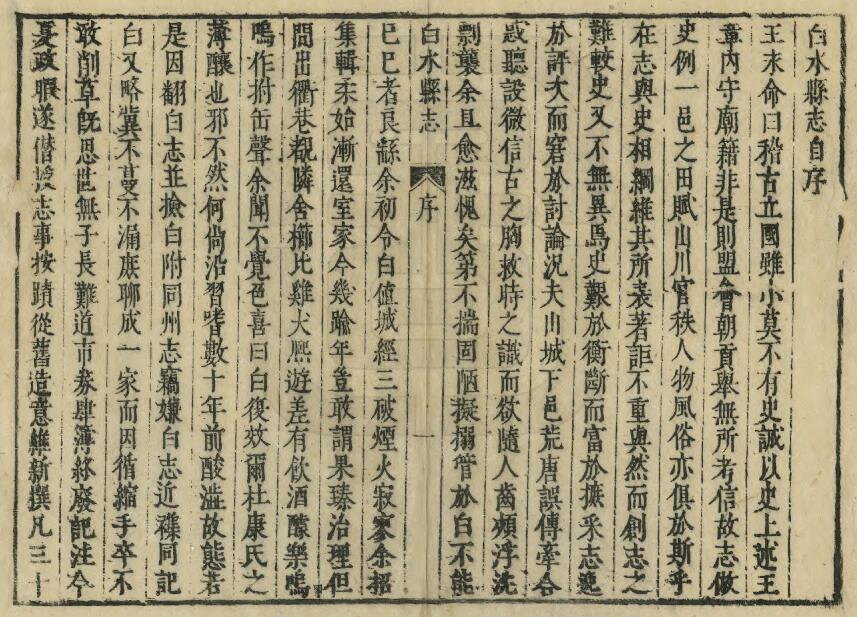 白水縣志自序
王求命曰稽古立國雖小莫不有史誠以史上述王
章內守廟籍非是則盟會朝貢舉無所考信故志倣
史例一邑之田賦山川官秩人物風俗亦俱於斯乎
在志與史相綱維其所表著詎不重與然而創志之
難較史又不無異焉史艱於衡斷而富於摭采志逸
於評次而窘於討論況夫山城下邑荒唐誤傳牽合
或聽設微信古之胸救時之識而欲隨人齒頰浮沈
剽襲余且愈滋愧矣第不揣固陋擬搦管於白不能
白水縣志 序 一
已已者良繇余初令白值城經三破煙火寂寥余招
集輯柔始漸還室家今幾踰年豈敢謂果臻治理但
間出衢巷覩隣舍櫛比雞犬熙遊差有飲酒釀樂嗚
嗚作拊缶聲余聞不覺色喜曰白復效爾杜康氏之
薄釀也邪不然何尙沿習嗜數十年前酸澁故態若
是因翻白志並撿白附同州志竊嫌白志近襍同記
白又略冀不蔓不漏庶聊成一家而因循縮手卒不
敢削草旣思世無子長難道市劵肆簿終廢記注今
夏政暇遂偕 志事按蹟從舊造意維新撰凡三十